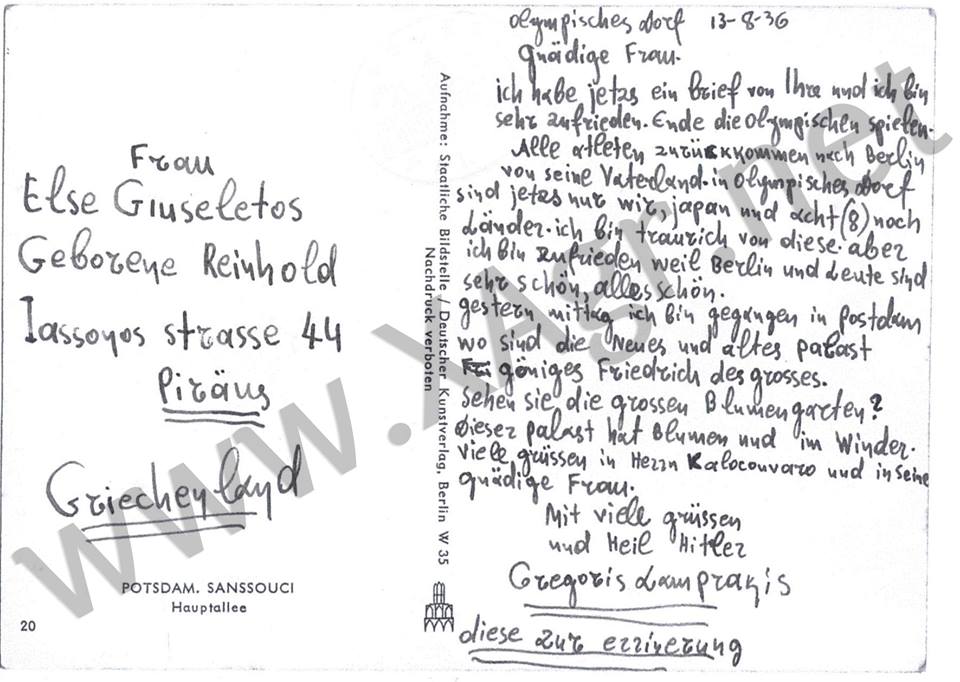 Frau
Else Giuseletos
Geborene Reinhold
Iassonos strasse 44
Piräus
Griechenland
POTSDAM. SANSSOUCI
Hauptallee
20
Aufnahme: Staatliche Bildstelle / Deutscher Kunstverlag, Berlin W 35
Nachdruck verboten
Olympisches dorf 13-8-36
gnädige Frau.
ich habe jetzs ein brief von Ihre und ich bin
sehr zufrieden. Ende die Olympischen spielen.
Alle atleten zurückkommen nach Berlin
von seine Vaterland. in Olympisches dorf
sind jetzs nur wir, japan und acht (8) noch
Länder. ich bin traurich von diese. aber
ich bin zufrieden weil Berlin und Leute sind
sehr schön, alles schön.
gestern mittag ich bin gegangen in postdam
wo sind die Neues und altes palast
göniges Friedrich des grosses.
Sehen sie die grossen Blumengarten?
dieser palast hat Blumen und im Winder.
viele grüssen in Herrn Kalocouvaro und in seine
gnädige Frau.
Mit viele grüssen
und Heil Hitler
Gregoris Lamprakis
diese zur errinerung
www.XAgr.net